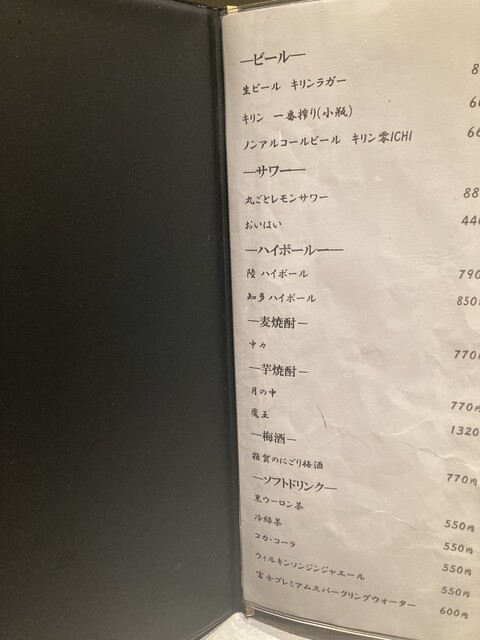 ―ビール―
生ビール キリンラガー 8
キリン 一番搾り(小瓶) 66
ノンアルコールビール キリン零ICHI 66
―サワー―
丸ごとレモンサワー 88
おいはい 440
―ハイボール―
陸 ハイボール 790
知多 ハイボール 850円
―麦焼酎―
中々 770円
―芋焼酎―
月の中 770円
魔王 1320
―梅酒―
雑賀のにごり梅酒 770円
―ソフトドリンク―
黒ウーロン茶 550円
冷緑茶 550円
コカ・コーラ 550円
ウィルキンソンジンジャエール 550円
富士プレミアムスパークリングウォーター 600円